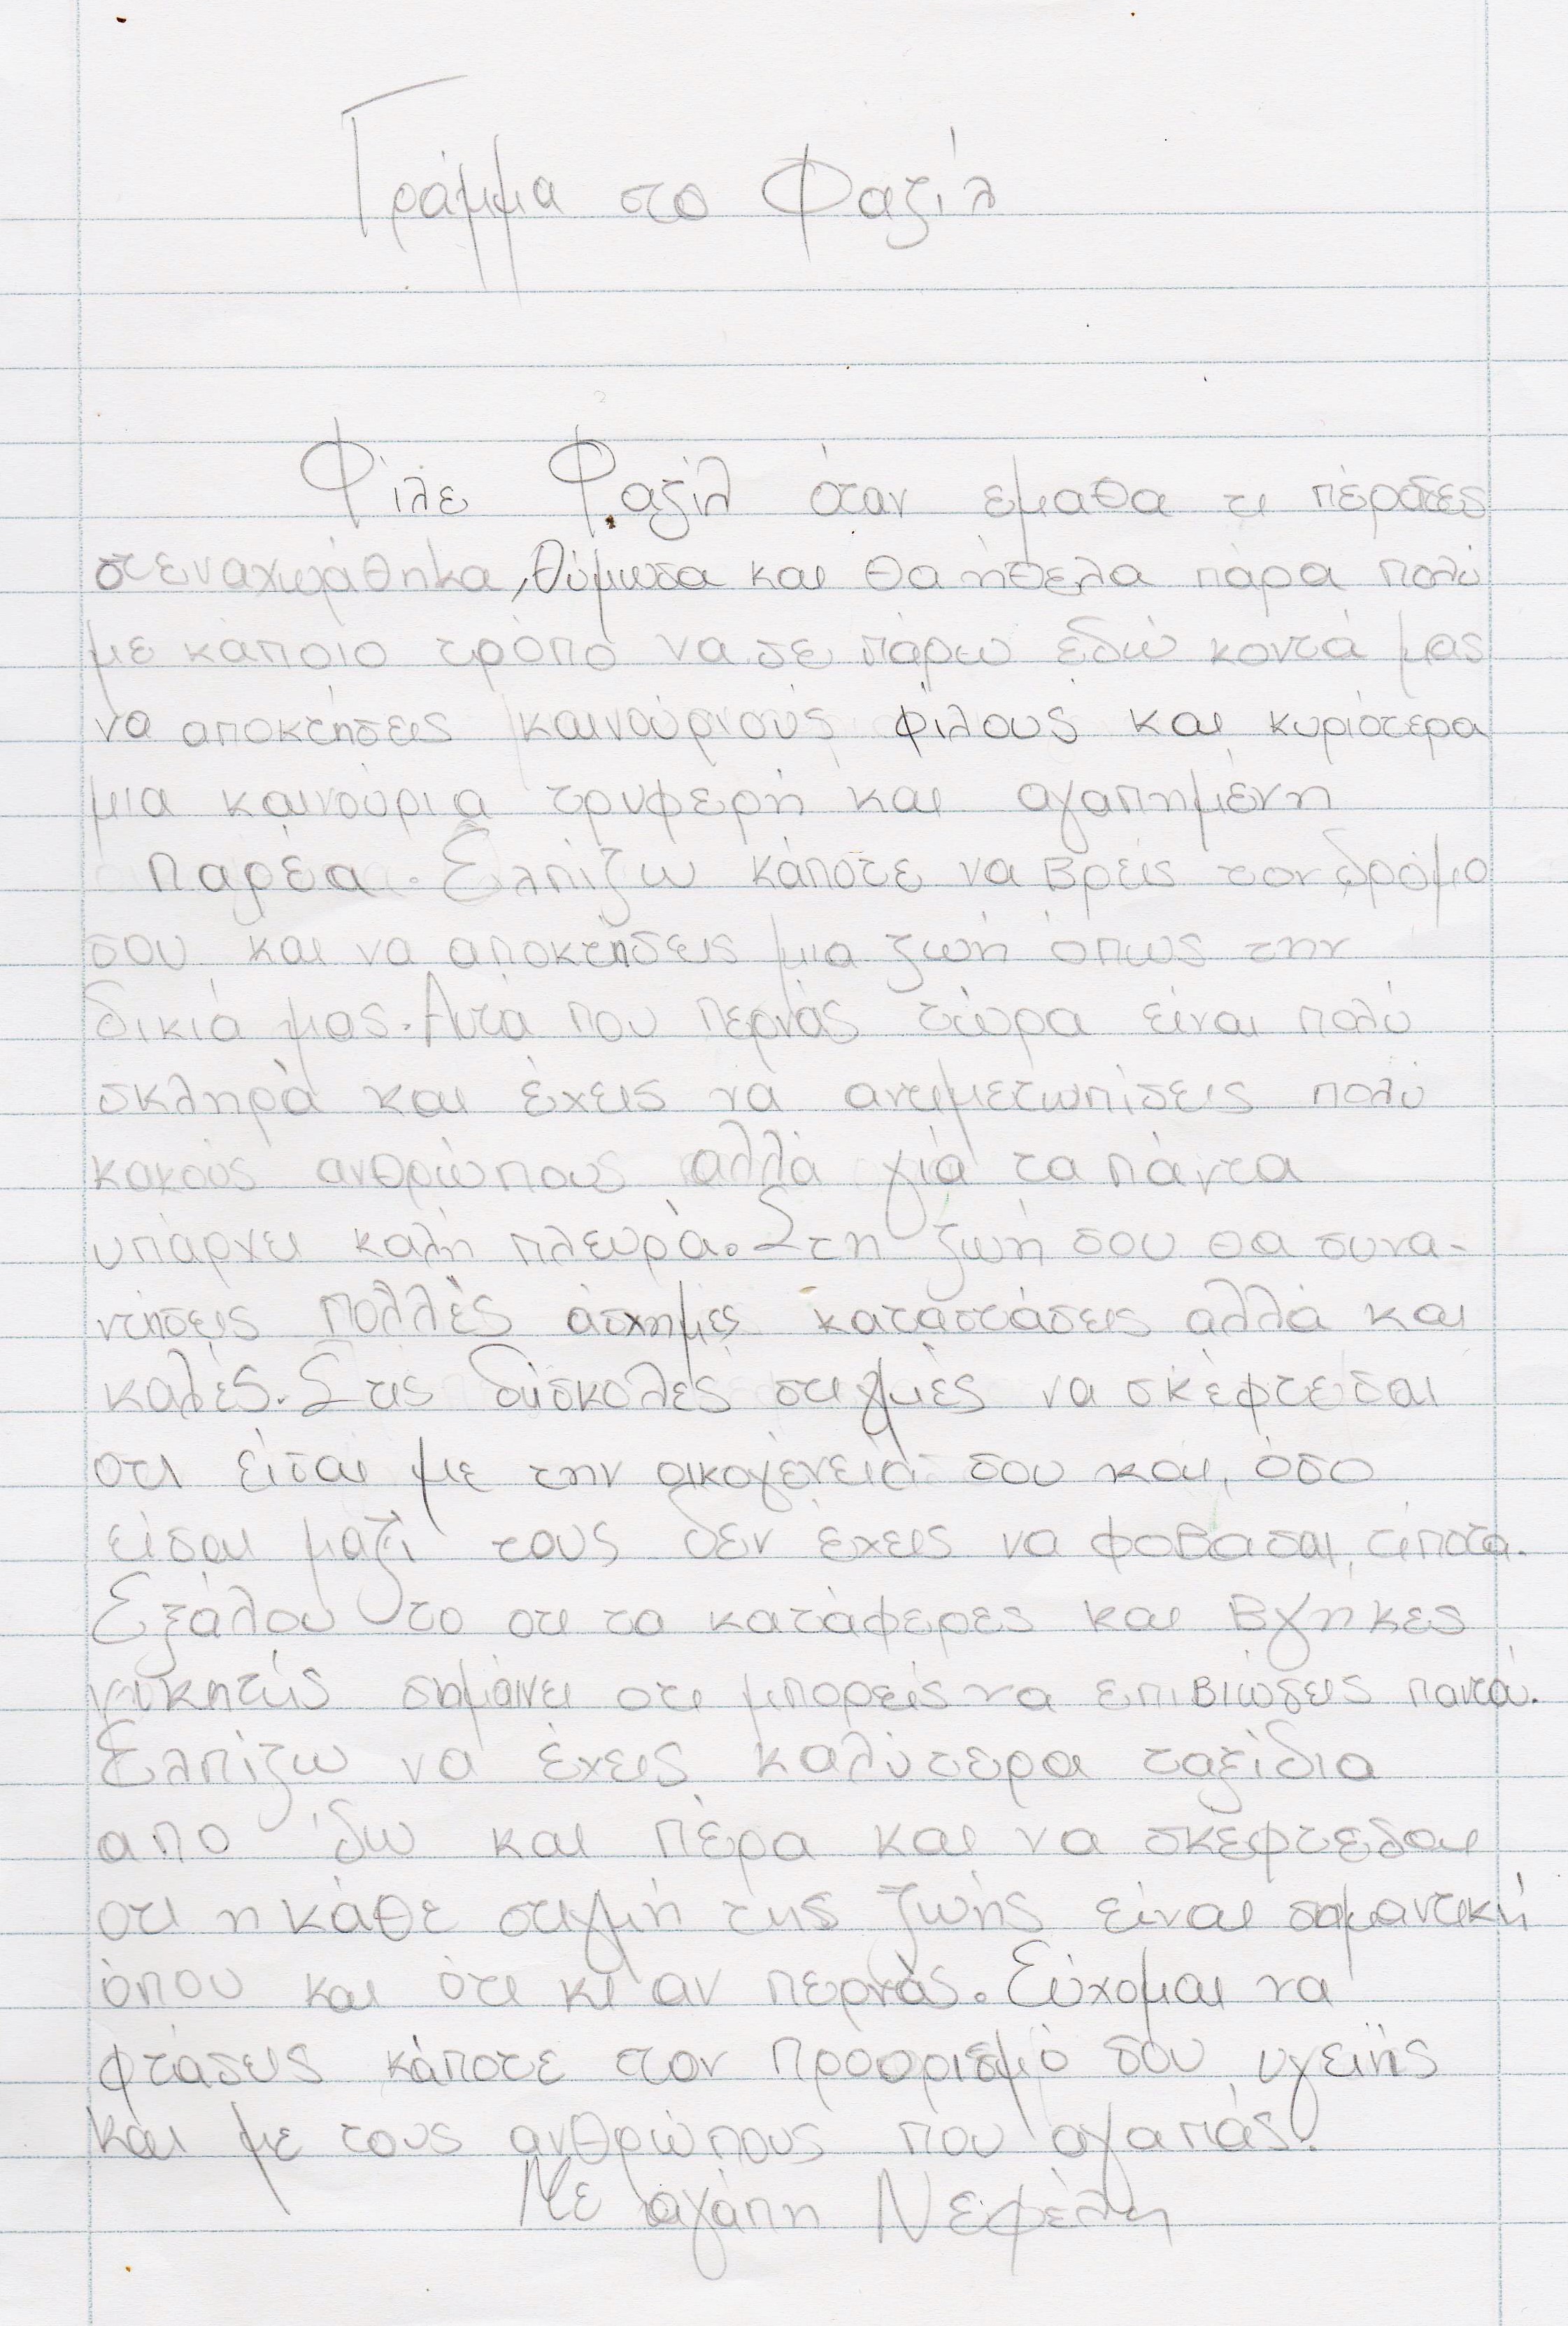 Γράμμα στο Φαζίλ
Φίλε Φαζίλ όταν εμαθα τι πέρασες
στεναχωρήθηκα, θύμωσα και θα ήθελα πάρα πολύ
με κάποιο τρόπο να σε πάρω εδώ κοντά μας
να αποκτήσεις καινούριους φίλους και κυριότερα
μια καινούρια τρυφερή και αγαπημένη
παρέα. Ελπίζω κάποτε να βρείς τον δρόμο
σου και να αποκτήσεις μια ζωή όπως την
δικιά μας. Αυτά που περνάς τώρα είναι πολύ
σκληρά και έχεις να αντιμετωπίσεις πολύ
κακούς ανθρώπους αλλά γιά τα πάντα
υπάρχει καλή πλευρά. Στη ζωή σου θα συνα-
ντήσεις πολλές άσχημες καταστάσεις αλλά και
καλές. Στις δύσκολες στιγμές να σκέφτεσαι
οτι είσαι με την οικογένειά σου και όσο
είσαι μαζί τους δεν έχεις να φοβάσαι τίποτα.
Εξάλου το οτι τα κατάφερες και βγήκες
νικητής σημαίνει οτι μπορείς να επιβιώσεις παντού.
Ελπίζω να έχεις καλύτερα ταξίδια
απο 'δω και πέρα και να σκεφτεσαι
οτι η κάθε στιγμή της ζωής είναι σημαντική
όπου και ότι κι αν περνάς. Εύχομαι να
φτάσεις κάποτε στον προορισμό σου υγειής
και με τους ανθρώπους που αγαπάς.
Με αγάπη Νεφέλη